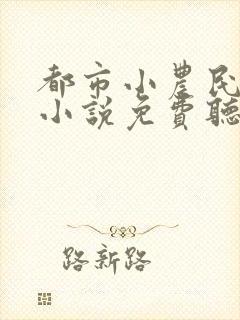 都市小農民
小説免費聽
路新路